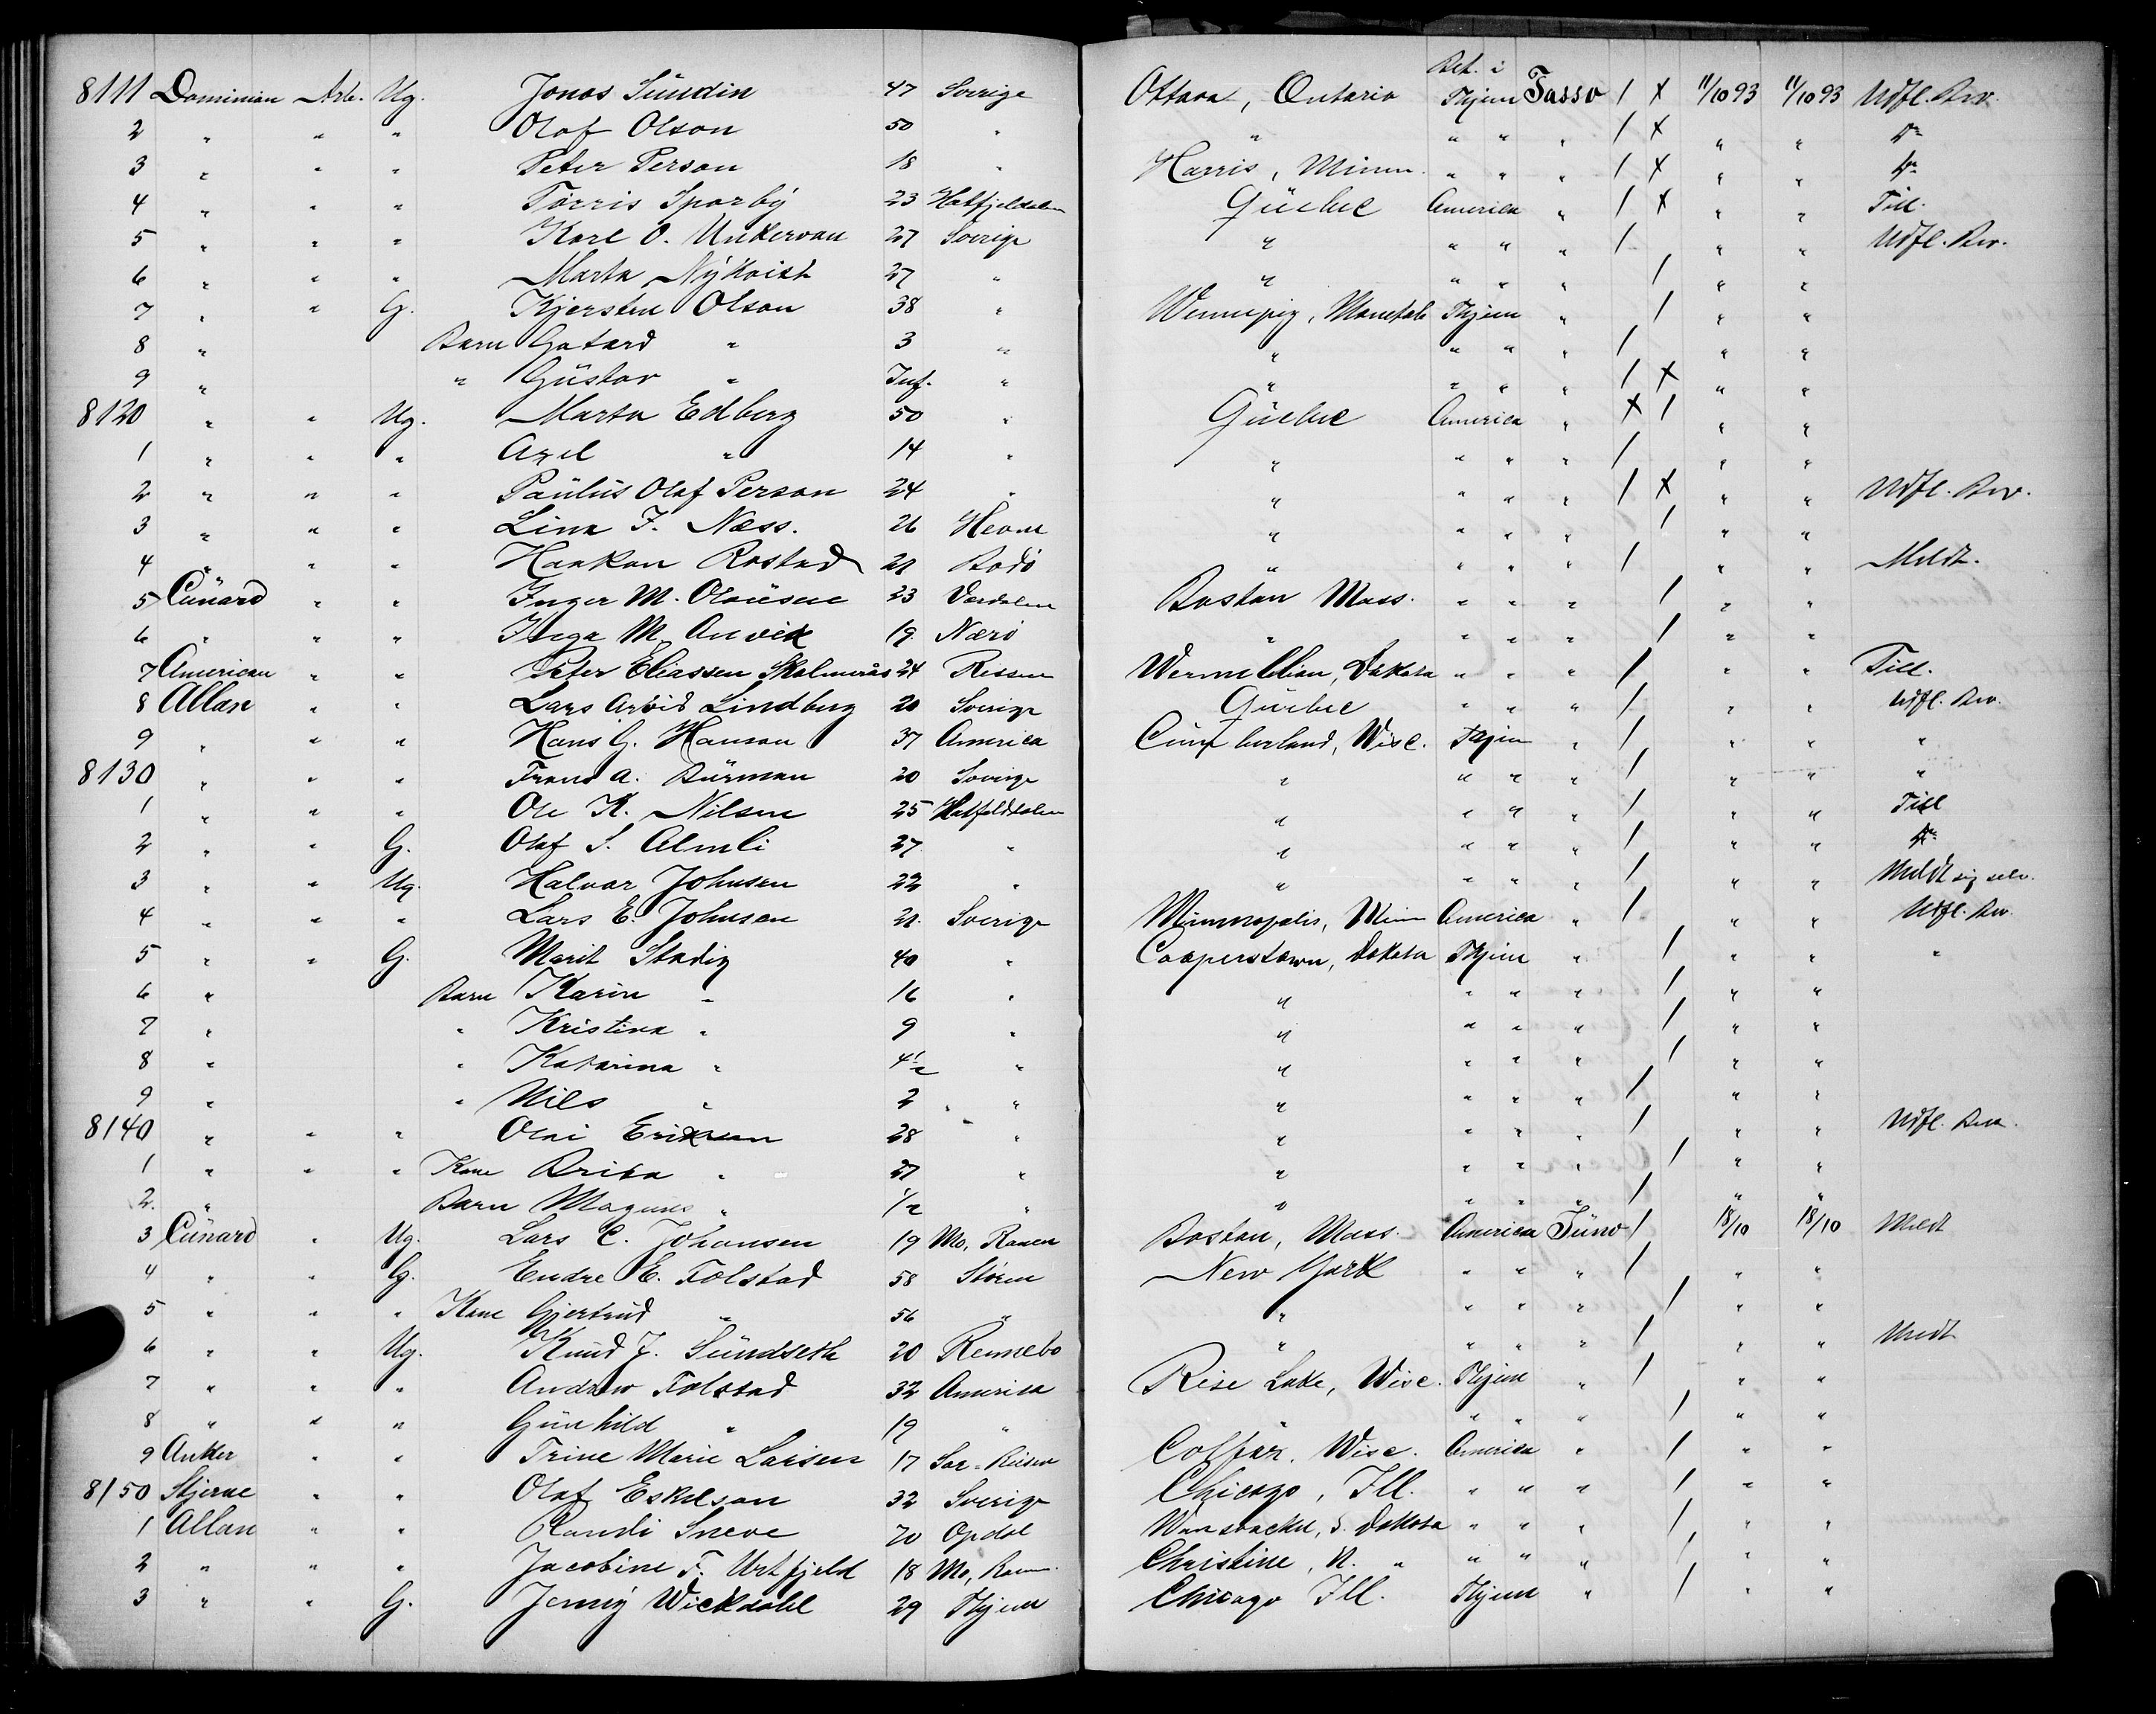 Bet. i
8111 Dominion Arb. Ug. Jonas Sundin 47 Sverige Ottava, Ontario Thjem Tasso / x 11/10 93 11/10 93 Udfl. Bev.
2 " " " Olof Olson 50 " " " " " / x " " do
3 " " " Peter Person 18 " Harris, Minn. " " " / x " " do
4 " " " Torris Sporby 23 Hatfjeldalen Quebec America " / x " " Till.
5 " " " Karl O. Unkervan 27 Sverige " " " " / " " Udfl. Bev.
6 " " " Marta Nykvist 27 " " " " " / " "
7 " " G. Kjersten Olson 38 " Winnipeg, Manetob Thjem " / " "
8 " Barn Gotard " 3 " " " " " / " "
9 " " Gustav " Inf. " " " " " / x " "
8120 " " Ug. Marta Edberg 50 " Quebec America " x / " "
1 " " " Axel " 14 " " " " " / " "
2 " " " Paulus Olof Person 24 " " " " " / x " " Udfl. Bev.
3 " " " Lina F. Næss. 26 Hevne " " " " / " "
4 " " " Haakon Rostad 21 Bodö " " " " / " " Meldt.
5 Cunard " " Inger M. Olausen 23 Værdalen Boston Mass. " " " / " "
6 " " " Inga M. Anvik 19 Nærö " " " " / " "
7 American " " Peter Eliassen Skolmerås 24 Rissen Wermellion, Dakota " " " / " " Till.
8 Allan " " Lars Arvid Lindberg 20 Sverige Quebec " " " / " " Udfl. Bev.
9 " " " Hans G. Hanson 37 America Cumberland, Wisc. Thjem " / " " "
8130 " " " Frans A. Burman 20 Sverige " " " " / " " "
1 " " " Ole K. Nilsen 25 Hatfeldtalen " " " " / " " Till
2 " " G. Olaf S. Almli 37 " " " " " / " " do
3 " " Ug. Halvar Johnsen 22 " " " " " / " " Meldt sig selv.
4 " " " Lars E. Johnsen 21 Sverige Minnopolis, Minn America " / " " Udfl. Bev.
5 " " G. Marit Stadig 40 " Cooperstown, Dakota Thjem " / " " "
6 " Barn Karin " 16 " " " " " / " "
7 " " Kristina " 9 " " " " " / " "
8 " " Katarina " 4½ " " " " " / " "
9 " " Nils " 2 " " " " " / " "
8140 " " " Olai Eriksen 28 " " " " " / " " Udfl. Bev.
1 " " " Kone Brita " 27 " " " " " / " "
2 " Barn Magnus " ½ " " " " " / " "
3 Cunard " Ug. Lars C. Johansen 19 Mo, Ranen Boston, Mass. America Juno / 18/10 18/10 Meldt
4 " " G. Endre E. Folstad 58 Støren New York " " " / " "
5 " " " Kone Gjertrud " 56 " " " " " / " "
6 " " Ug. Knud J. Sundseth 20 Rennebo " " " " / " " Meldt
7 " " " Andrew Folstad 32 America Rise Lake, Wisc. Thjem " / " "
8 " " " Gunhild " 19 " " " " " / " "
9 Anker " " Trine Marie Larsen 17 Colfax, Wisc. America " / " "
8150 Stjerne " " Olof Eskelson 32 Sverige Chicago, Ill. " " " / " "
1 Allan " " Randi Sneve 70 Opdal S. Dakota " " " / " "
2 " " " Jacobine F. Urtfjeld 18 Mo, Ranen Christine, N. " " " " / " "
3 " " G. Jenny Wickdahl 29 Thjem Chicago Ill. Thjem " / " "